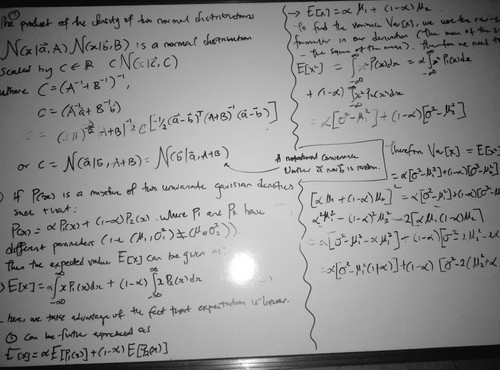 The product of the density of two normal distributions
N(x|ā,A) N(x|b̄,B) is a normal distribution
scaled by c ∈ ℝ c N(x|c̄,C)
where C = (A⁻¹ + B⁻¹)⁻¹,
c = C(A⁻¹ā + B⁻¹b̄)
|A+B|^(-1/2) e[-1/2(ā-b̄)ᵀ(A+B)⁻¹(ā-b̄)]
or c = N(ā|b̄, A+B) = N(b̄|ā, A+B)
A notational convenience
Neither ā nor b̄ is random.
If P(x) is a mixture of two univariate gaussian densities
such that:
P(x) = α P₁(x) + (1-α) P₂(x), where P₁ and P₂ have
different parameters (i.e (μ₁, σ₁²) ≠ (μ₂, σ₂²)).
Then the expected value E[x] can be given as:
E[x] = α ∫ x P₁(x) dx + (1-α) ∫ x P₂(x) dx
here, we take advantage of the fact that expectation is linear.
① can be further expressed as
E[x] = α E[P₁(x)] + (1-α) E[P₂(x)]
→ E[x] = α μ₁ + (1-α) μ₂
To find the variance Var[x], we use the
formular in our derivation (The mean of the
- the square of the mean). Therefore we need to
E[x²] = ∫ x² P(x) dx = α ∫ x² P₁(x) dx
+ (1-α) ∫ x² P₂(x) dx
= α[σ² - μ₁²] + (1-α)[σ² - μ₂²]
Therefore Var[x] = E[x²]
= α[σ² - μ₁²] + (1-α)[σ² - μ₂²]
[α μ₁ + (1-α) μ₂]² = α[σ² - μ₁²] + (1-α)[σ² - μ
α² μ₁² - (1-α)² μ₂² - 2[α μ₁ (1-α) μ₂]
= α[σ² - μ₁² - α μ₁²] + (1-α)[σ² - μ₂²
= α[σ² - μ₁²(1+α)] + (1-α) [σ² - 2(μ₂² + α